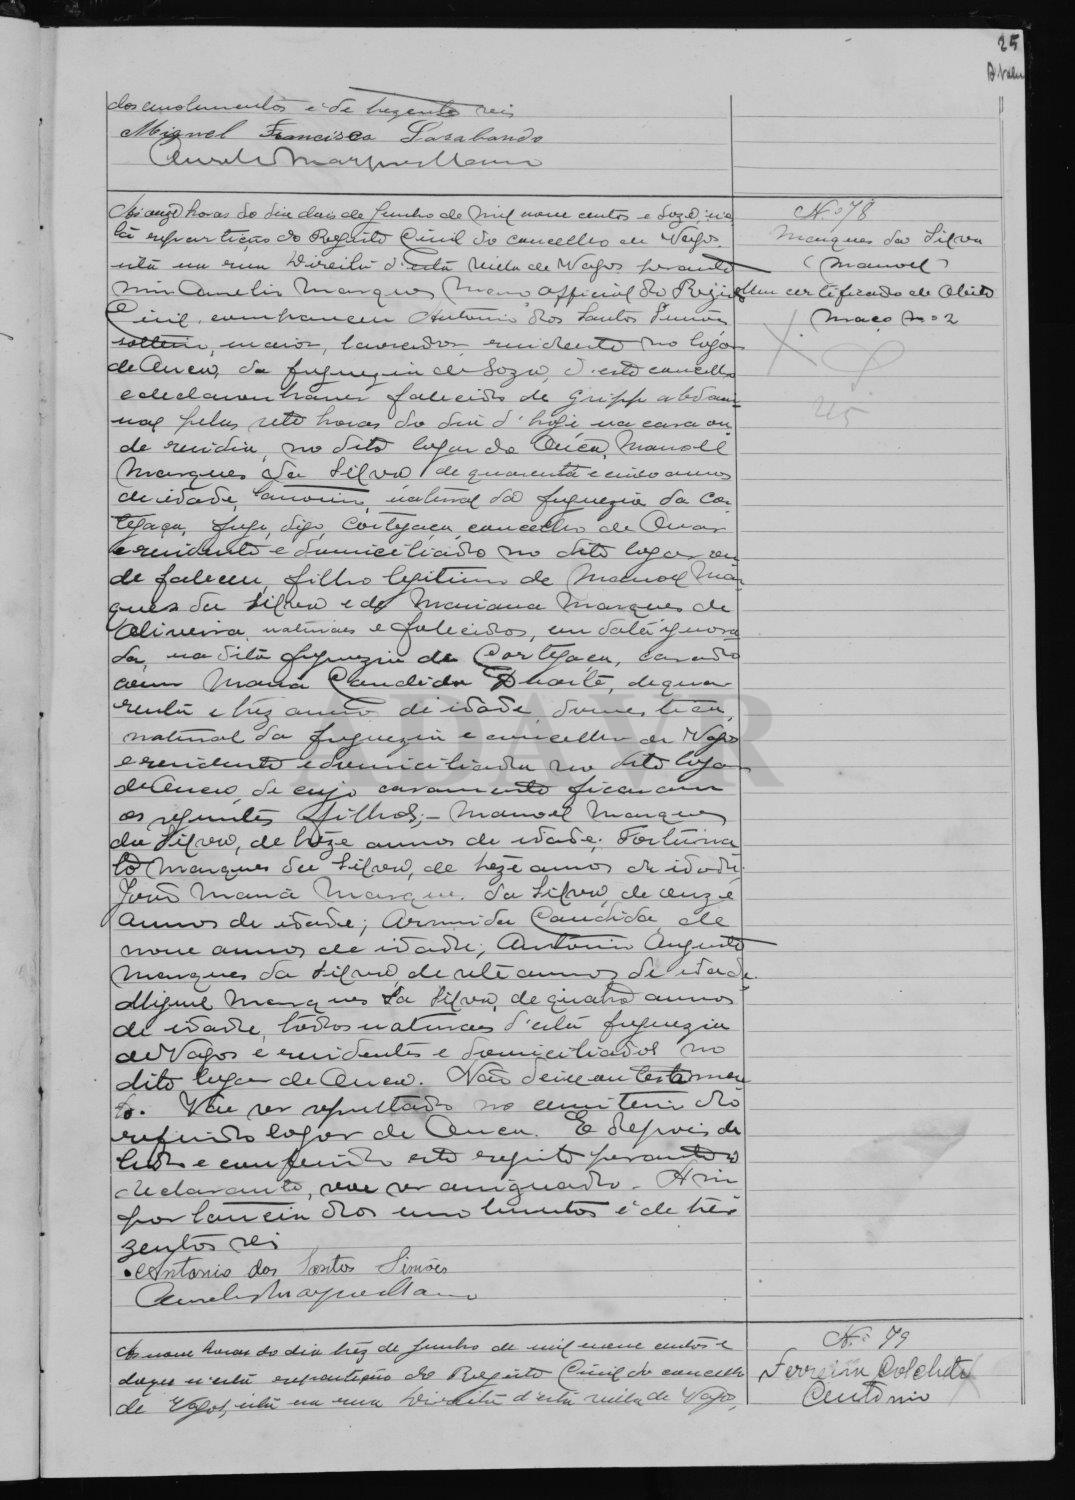 25
dos emolumentos é de trezentos reis
Miguel Francisco Sarabando
Aurelio Marques Mano
Nº 78
Marques da Silva
(Manoel)
Um certificado de obito
Maço nº 2
Ás onze horas do dia dois de Junho de mil nove centos e doze, n'es
ta repartição do Registo Civil do concelho de Vagos,
sita na rua Direita d'esta Villa de Vagos perante
mim Aurelio Marques Mano, official do Registo
Civil, compareceu Antonio dos Santos Simões
solteiro, maior, lavrador, residente no logar
de Ouca, da freguezia de Soza, d'este concelho
e declarou haver fallecido de grippe abdomi
nal pelas sete horas do dia d'hoje na casa on
de residia, no dito logar de Ouca, Manoel
Marques da Silva de quarenta e cinco annos
de idade, natural da freguezia da Cor
tegaça, fregu, digo, Cortegaça, concelho de Ovar
e residente e domiciliado no dito logar on
de faleceu, filho legitimo de Manoel Mar
ques da Silva e de Mariana Marques de
Oliveira, naturaes e falecidos, em data ignora
da, na dita freguezia de Cortegaça, casado
com Maria Candida Duarte, de qua
renta e trez annos de idade, domestica,
natural da freguezia e concelho de Vagos
e residente e domiciliada no dito logar
de Ouca, de cujo casamento ficaram
os seguintes filhos; - Manoel Marques
da Silva, de treze annos de idade; Fortuna
to Marques da Silva, de treze annos de idade;
João Maria Marques da Silva, de onze
annos de idade; Armida Candida, de
nove annos de idade; Antonio Augusto
Marques da Silva de sete annos de idade,
Miguel Marques da Silva, de quatro annos
de idade, todos naturaes d'esta freguezia
de Vagos e residentes e domiciliados no
dito logar de Ouca. Não deixou testamen
to. Vae ser sepultado no cemiterio do
referido logar de Ouca. E depois de
lido e conferido este registo perante o
declarante, vae ser assignado. A im
portancia dos emolumentos é de tre
zentos reis
Antonio dos Santos Simões
Aurelio Marques Mano
Nº 79
Ferreira Dolchete
Antonio
Ás nove horas do dia trez de Junho de mil nove centos e
doze n'esta repartição do Registo Civil do concelho
de Vagos, sita na rua Direita d'esta villa de Vagos,
ADAVR